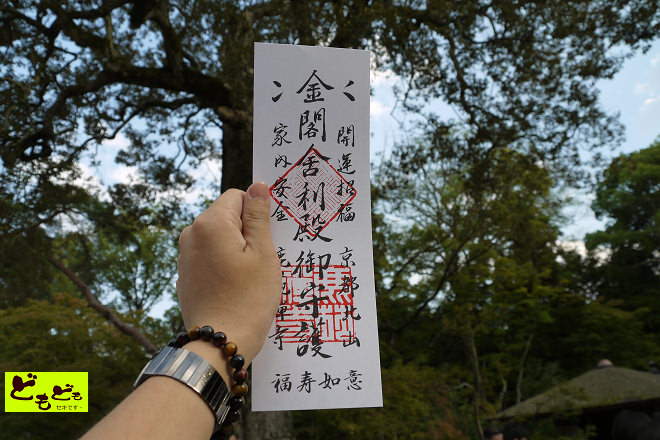 開運招福 京都北山
金閣舎利殿御守護
家内安全 鹿苑禅寺
福寿如意
どもども
セキです~